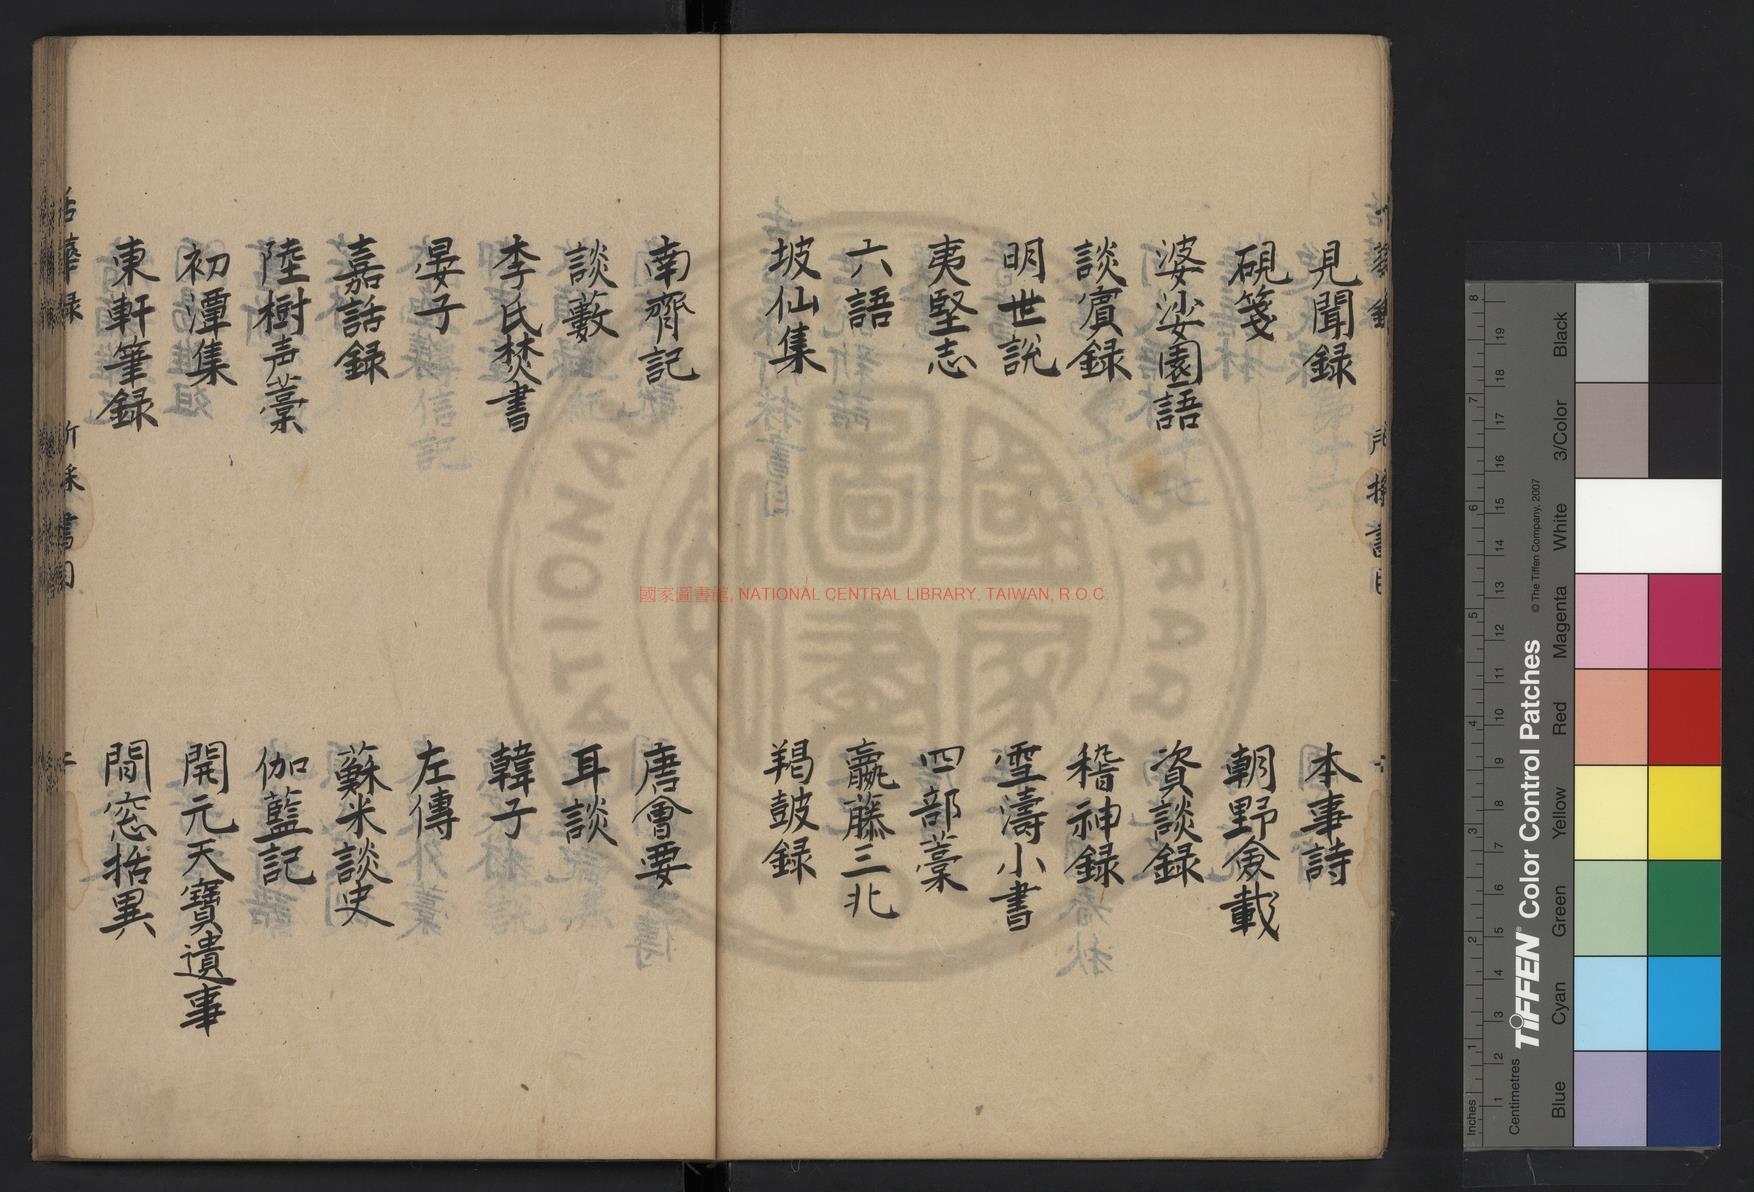 見聞録
本事詩
硯箋
朝野僉載
婆娑園語
資談録
談賓録
稽神録
明世說
雪濤小書
夷堅志
四部藁
六語
贏藤三北
坡仙集
羯鼓録
南齊記
唐會要
談藪
耳談
李氏焚書
韓子
晏子
左傳
嘉話録
蘇米談史
陸樹声藁
伽藍記
初潭集
開元天寶遺事
東軒筆録
閒窓括異
國家圖書館, NATIONAL CENTRAL LIBRARY, TAIWAN, R.O.C
Inches
Centimetres
TIFFEN® Color Control Patches
© The Tiffen Company, 2007
Blue
Cyan
Green
Yellow
Red
Magenta
White
3/Color
Black